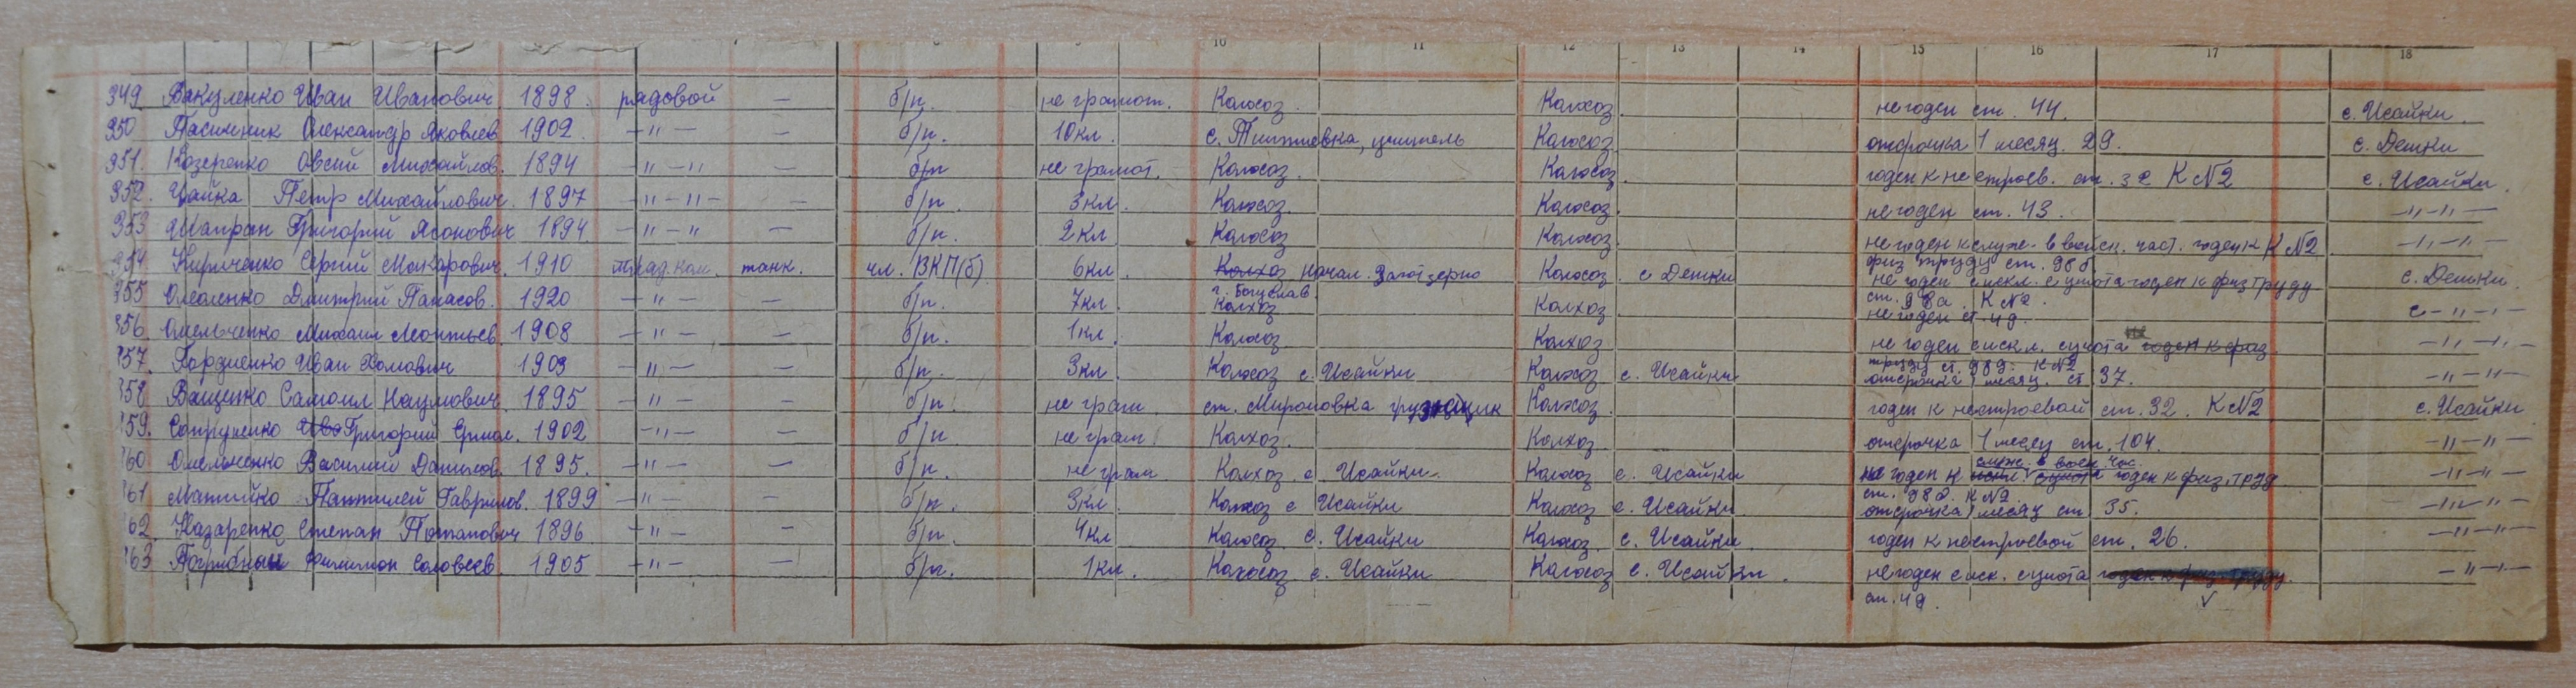 8 9 10 11 12 13 14 15 16 17 18
349 Вакуленко Иван Иванович 1898. рядовой — б/п. не грамот. Колхоз. Колхоз. не годен ст. 44. с. Исайки.
350 Пасичник Олександр Яковлев 1902. -"- — б/п. 10 кл. учитель Колхоз отсрочка 1 месяц. 29. с. Дешки
351. Козеренко Овсий Михайлов. 1894 "-" — б/п не грамот. Колхоз. Колхоз. годен к нестроев. ст. 32 К №2 с. Исайки.
352. Чайка Петр Михайлович. 1897 -"-"- — б/п. 3 кл. Колхоз. Колхоз. не годен ст. 43. -"-"-
353 Шапран Григорий Ясонович 1894. -"-" — б/п. 2 кл Колхоз Колхоз. не годен к служ. в войск. част. годен к К №2 -"-"-
физ труду ст. 98б.
354 Кириченко Сергий Макарович. 1910 танк. чл. ВКП(б) 6 кл. Колхоз начал. Заготзерно Колхоз. с Дешки не годен с искл. с учота годен к физ труду с. Дешки.
г. Богуслав. ст. 98а. К №2.
355 Дмитрий Панасов. 1920 -"- — б/п. 7 кл Колхоз Колхоз. не годен ст. 49. с -"-"-
356 Омельченко Михаил Леонтьев. 1908 -"- — б/п. 1 кл. Колхоз Колхоз не годен с искл. с учота годен к физ. -"-"-
труду ст. 98д. К №2
357. Гордиенко Иван Хомович 1903 -"- — б/п. 3 кл. Колхоз с. Исайки Колхоз с. Исайки отсрочка 1 месяц. ст 37. -"-"-
358 Ващенко Самоил Наумович. 1895 -"- — б/п. не грам ст. Мироновка грузчик Колхоз. годен к нестроевой ст. 32. К №2 с. Исайки
359. Сопруненко Григорий Ермол. 1902 -"- — б/п не грам Колхоз. Колхоз отсрочка 1 месяц ст. 104. -"-"-
служ. в войск. час.
360 Омельченко Василий Данилов. 1895. -"- — б/п. не грам Колхоз. с. Исайки. Колхоз с. Исайки не годен к искл. с учота годен к физ. труд -"-"-
ст. 98 д. К №2.
361 Матийко Пантилей Гаврилов. 1899 -"- — б/п. 3 кл. Колхоз с Исайки Колхоз с. Исайки отсрочка 1 месяц ст 35. -"-"-
362. Назаренко Степан Потапович 1896. -"- — б/п. 4 кл Колхоз. с. Исайки Колхоз. с. Исайки. годен к нестроевой ст. 26. -"-"-
363 Погрибный Филимон Соловеев. 1905 -"- — б/п. 1 кл. Колхоз с. Исайки Колхоз с. Исайки. не годен с иск. с учота годен к физ. труду -"-"-
ст. 49.